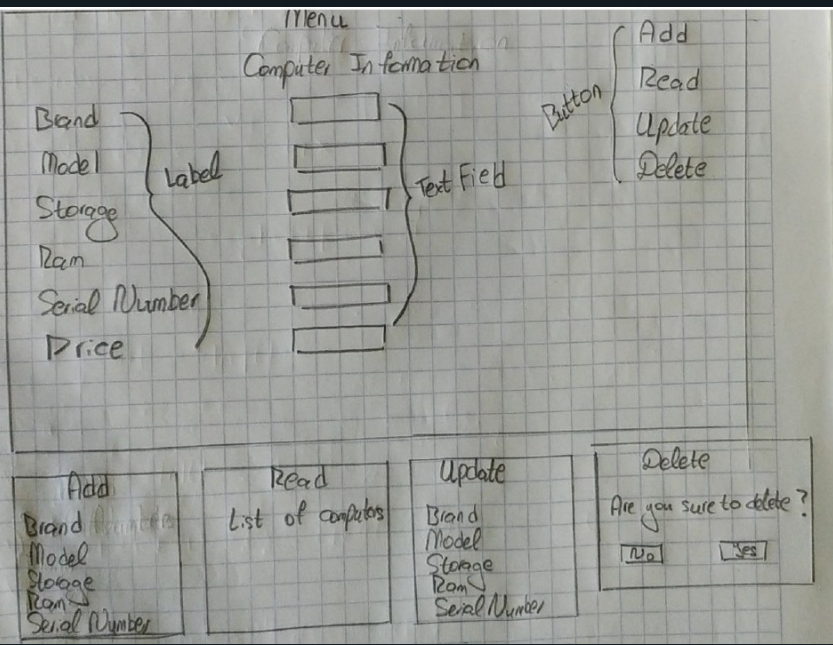 Menu
Computer Information
Brand
Model
Storage
Ram
Serial Number
Price
Label
Text Field
Button
Add
Read
Update
Delete
Add
Brand
Model
Storage
Ram
Serial Number
Read
List of computers
Update
Brand
Model
Storage
Ram
Serial Number
Delete
Are you sure to delete?
No
Yes